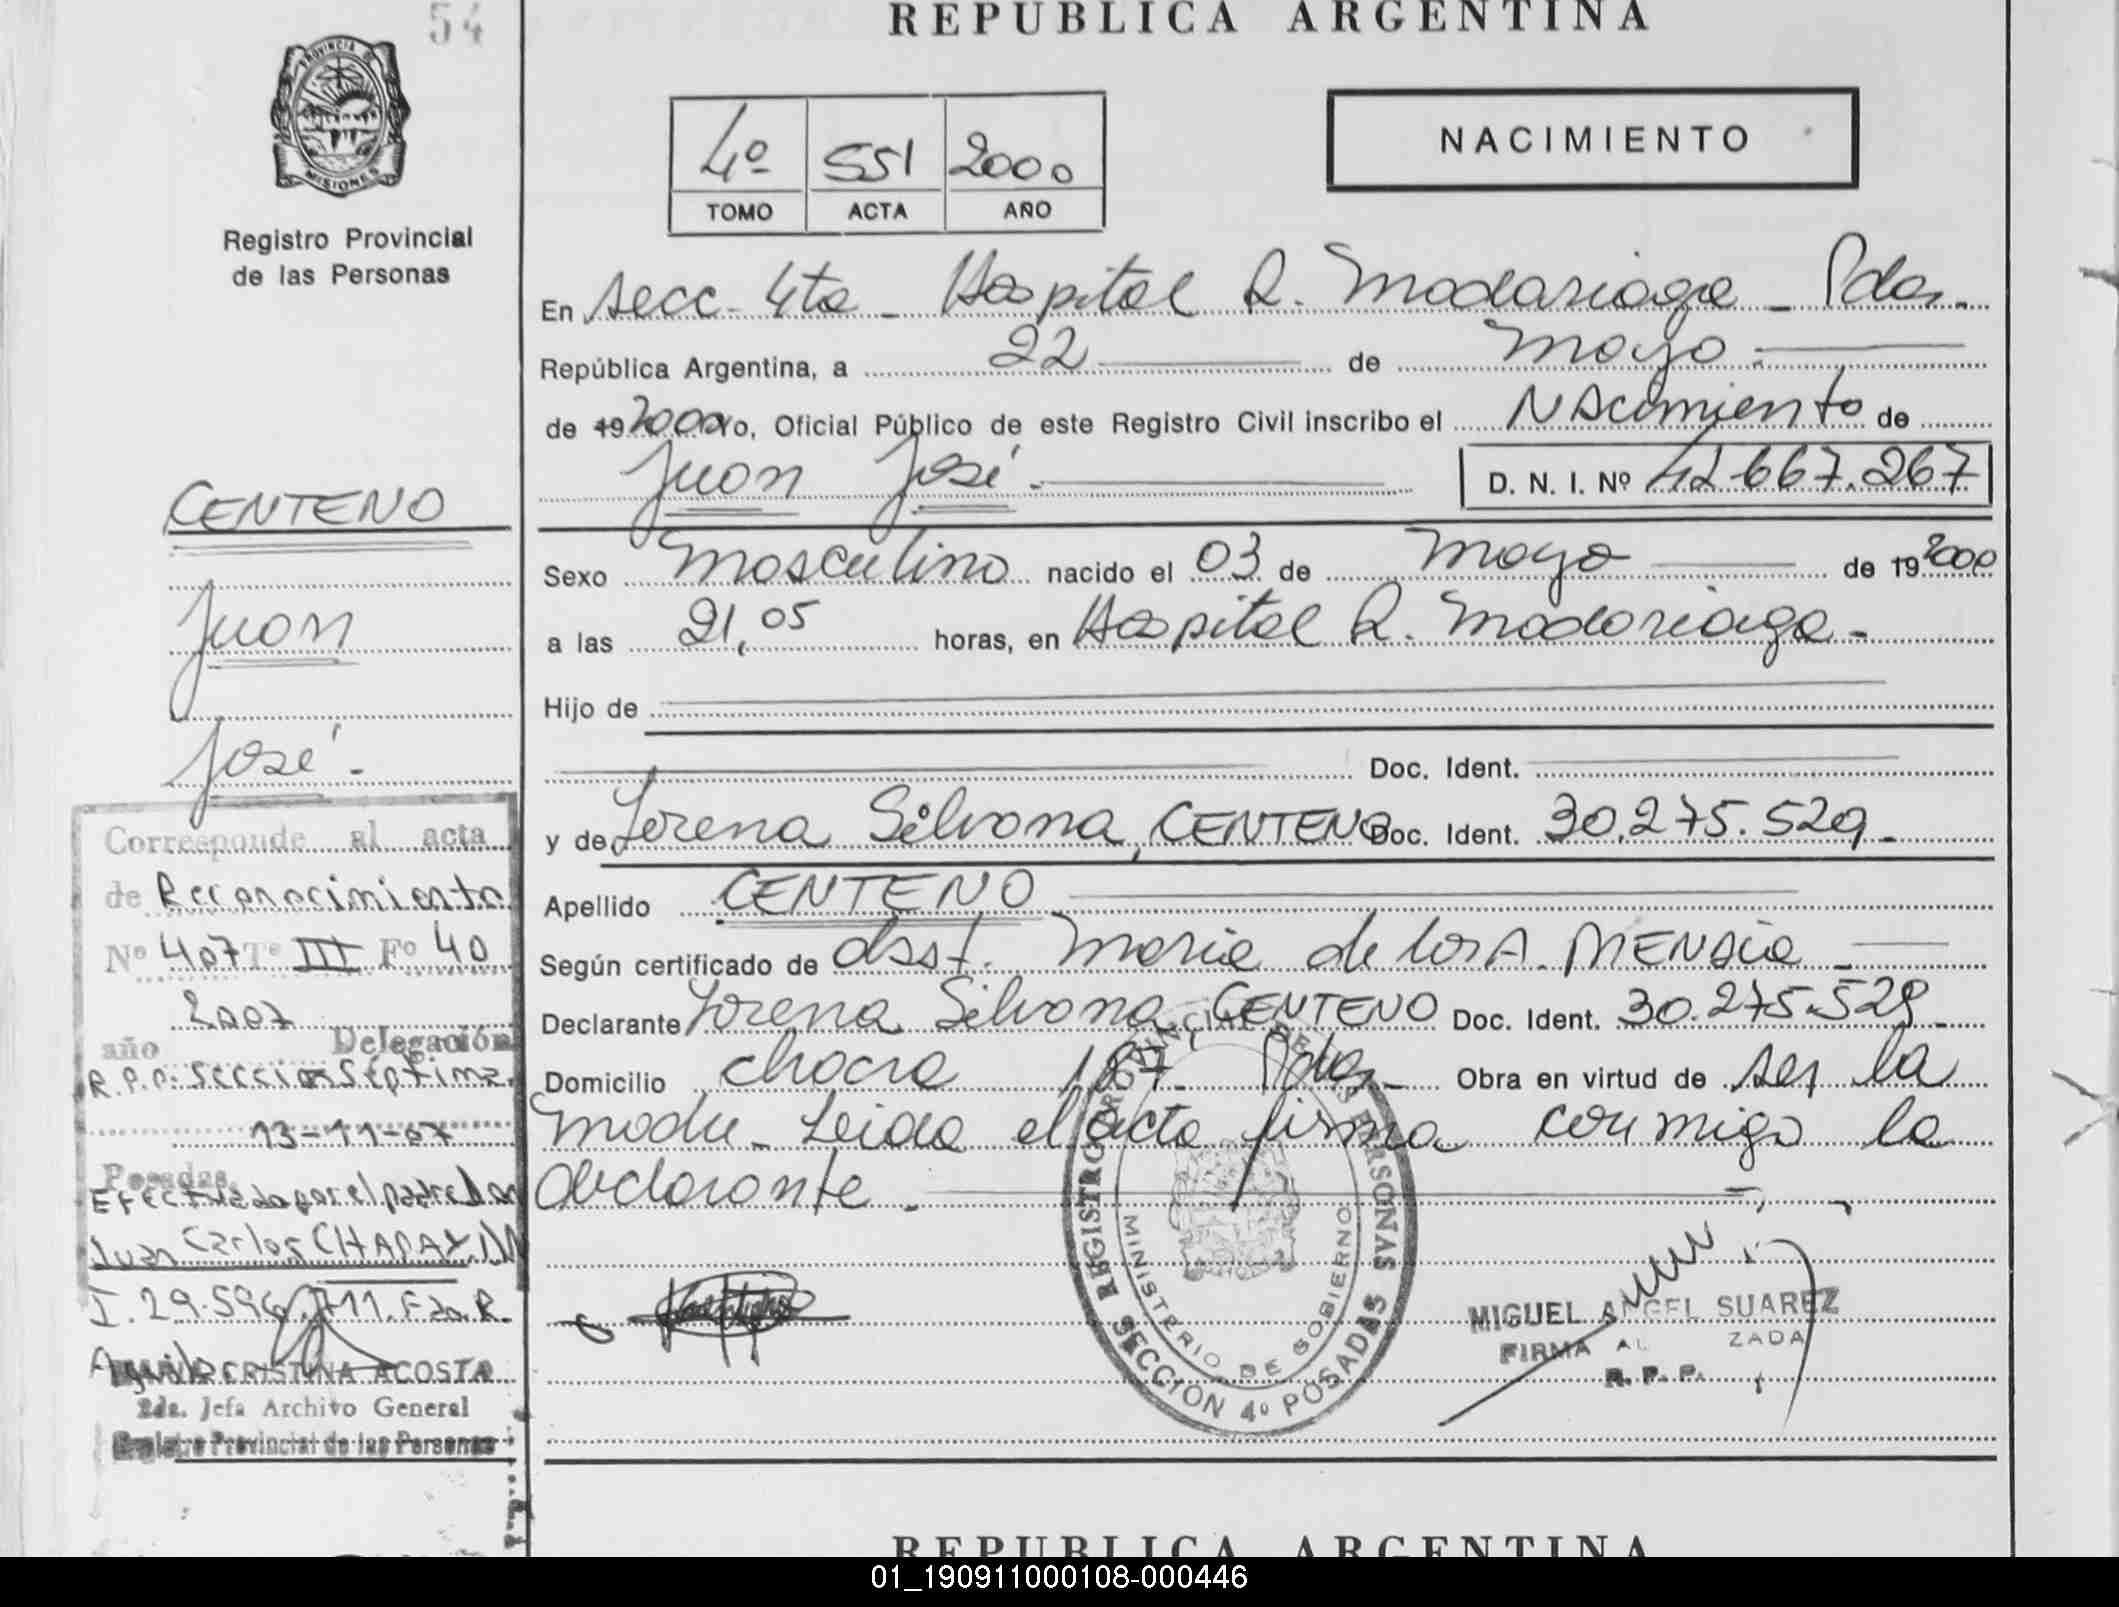 54
REPUBLICA ARGENTINA
PROVINCIA DE
MISIONES
Registro Provincial
de las Personas
4º 551 2000
TOMO ACTA AÑO
NACIMIENTO
En secc. 4ta - Hospital R. Madariaga - Pdas.
República Argentina, a 22 de Mayo.
de 19 2000 Yo, Oficial Público de este Registro Civil inscribo el Nacimiento de
Juan José.
D. N. I. Nº 42.667.267
Sexo Masculino nacido el 03 de Mayo de 19 2000
a las 21,05 horas, en Hospital R. Madariaga.-
Hijo de
Doc. Ident.
y de Lorena Silvana, CENTENO Doc. Ident. 30.275.529.-
Apellido CENTENO
Según certificado de obst. Maria de los A.
Declarante Lorena Silvana, CENTENO Doc. Ident. 30.275.529.
Domicilio chacra 187. Pdas.- Obra en virtud de ser la
madre - Leida el acta firma conmigo la
declarante.-
CENTENO
Juan
José.-
Corresponde al acta
de Reconocimiento
Nº 407 Tº III Fº 40
2007
año Delegación
R.P.P. Sección Séptima.
13-11-07
Posadas,
Efectuado por el padre
Juan Carlos
I. 29.596.711.
CRISTINA ACOSTA
2da. Jefa Archivo General
Registro Provincial de las Personas
REGISTRO PROVINCIAL DE LAS PERSONAS
MINISTERIO DE GOBIERNO
SECCION 4º POSADAS
MIGUEL ANGEL SUAREZ
FIRMA AL ZADA
R. P. P.
REPUBLICA ARGENTINA
01_190911000108-000446